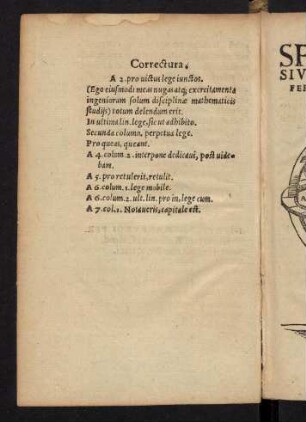 Correctura.
A 2. pro uictus lege iunctos.
(Ego eiusmodi meas nugas atq; exercitamenta
ingeniorum solum disciplinæ mathematicis
studijs) totum delendum erit.
In ultima lin. lege, sicut adhibito.
Secunda column. perpetua lege.
Pro queat, queant.
A 4. colum 2. interpone dedicaui, post uide-
bam.
A 5. pro retulerit, retulit.
A 6. colum. 1. lege mobile.
A 6. colum. 2. ult. lin. pro in, lege cum.
A 7. col. 1. Notaueris, capitale est.
SP
SIV
FE